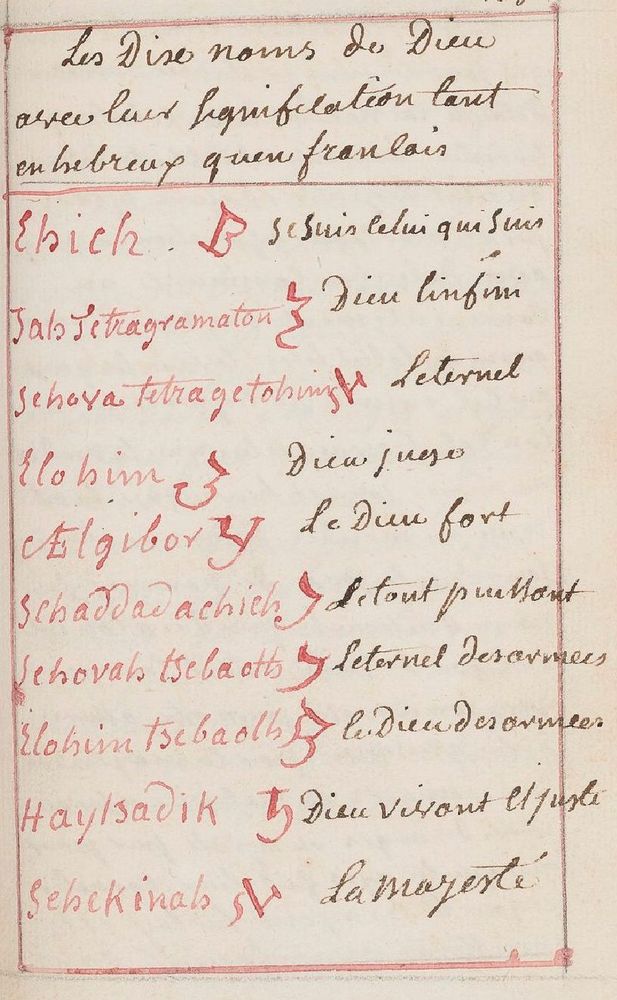 Les Dixe noms de Dieu
avec leur signification tant
en hebreux quen francais
Ehieh . Je suis celui qui suis
Jah Tetragramaton Dieu linfini
Jehova Leternel
Elohim Dieu juge
Ælgibor Le Dieu fort
Schaddadachieh Le tout puissant
Jehovah tsebaoth Leternel des armees
Elohim tsebaolh le Dieu des armees
Haytsadik Dieu vivant et juste
Schekinah La mayesté